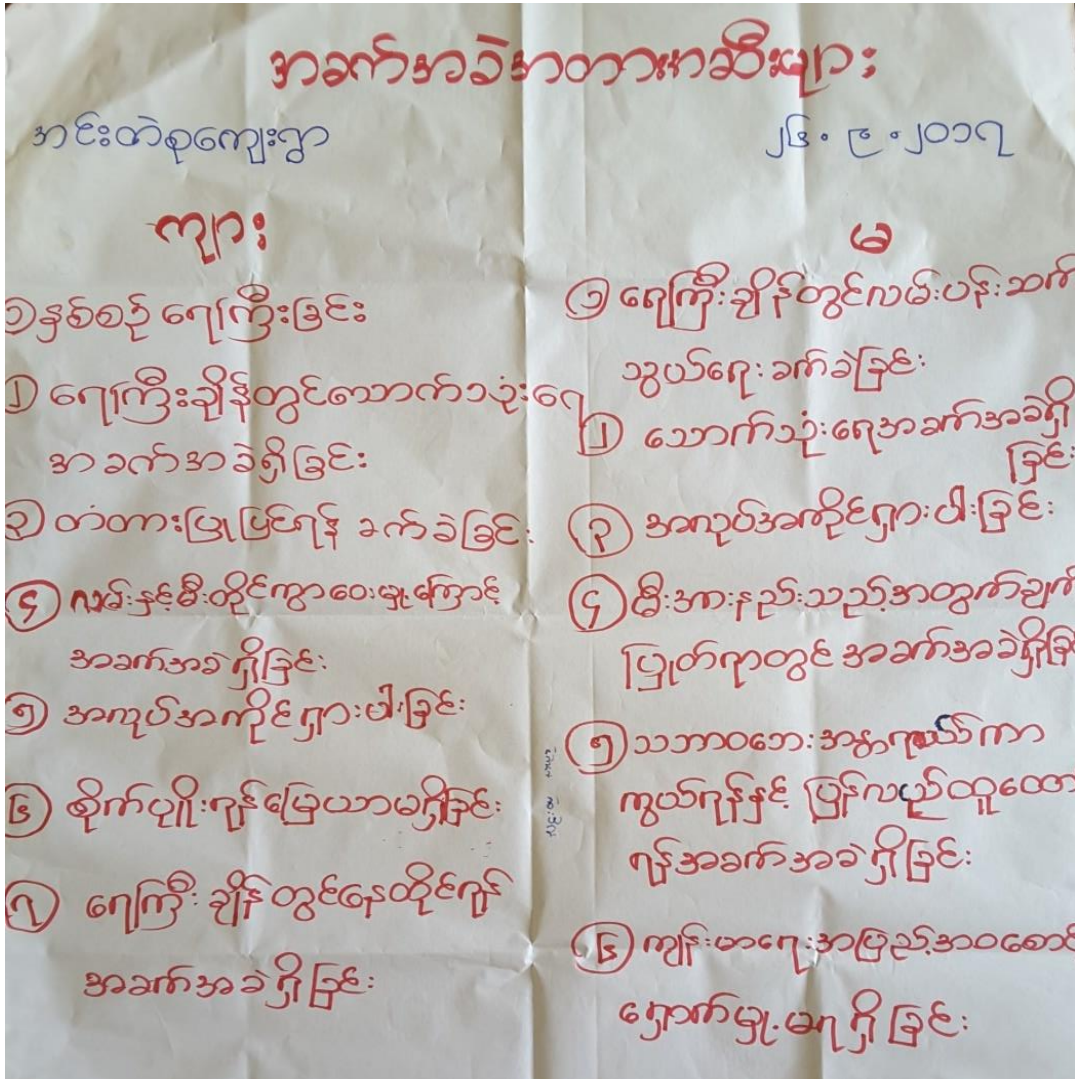 အခက်အခဲအတားအဆီးများ
အင်းတဲစုကျေးရွာ
၂၆.၉.၂၀၁၇
ကျား
၁ နှစ်စဉ် ရေကြီးခြင်း
၂ ရေကြီးချိန်တွင်သောက်သုံးရေ
အခက်အခဲရှိခြင်း
၃ တံတားပြုပြင်ရန် ခက်ခဲခြင်း
၄ လမ်းနှင့်မီးတိုင်ကွာဝေးမှုကြောင့်
အခက်အခဲရှိခြင်း
၅ အလုပ်အကိုင်ရှားပါးခြင်း
၆ စိုက်ပျိုးရန်မြေယာမရှိခြင်း
၇ ရေကြီးချိန်တွင်နေထိုင်ရန်
အခက်အခဲရှိခြင်း
မ
၁ ရေကြီးချိန်တွင်လမ်းပန်းဆက်
သွယ်ရေးခက်ခဲခြင်း
၂ သောက်သုံးရေအခက်အခဲရှိ
ခြင်း
၃ အလုပ်အကိုင်ရှားပါးခြင်း
၄ မီးအားနည်းသည့်အတွက်ချက်
ပြုတ်ရာတွင်အခက်အခဲရှိခြင်
၅ သဘာဝဘေးအန္တရာယ်ကာ
ကွယ်ရန်နှင့် ပြန်လည်ထူထော
ရန်အခက်အခဲရှိခြင်း
၆ ကျန်းမာရေးအပြည့်အဝစောင်
ရှောက်မှုမရှိခြင်း